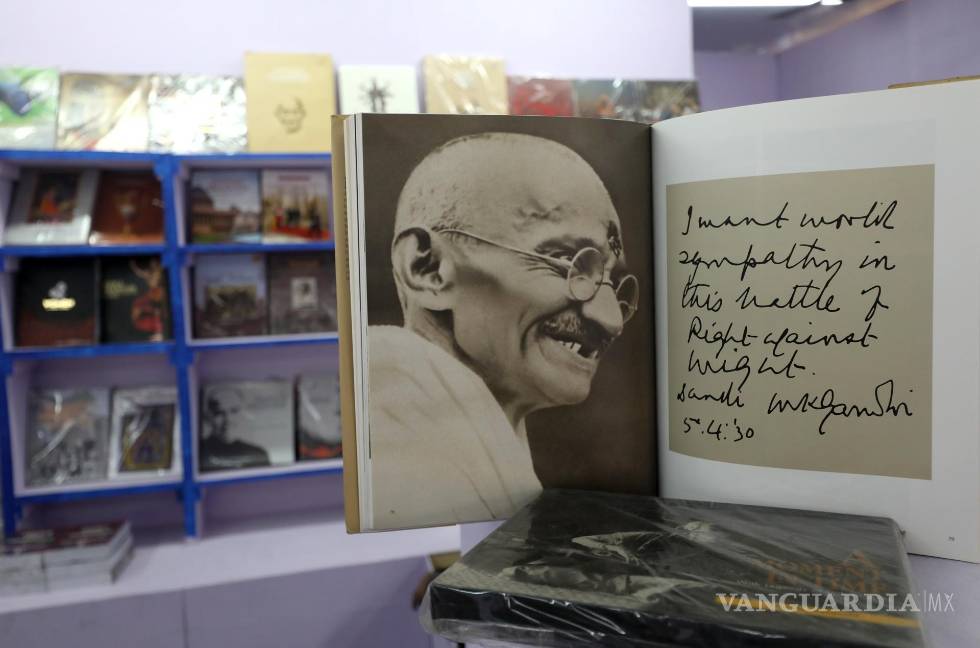 I want world
sympathy in
this battle of
Right against
might.
Dandi MKGandhi
5.4.'30
79
VANGUARDIA|MX